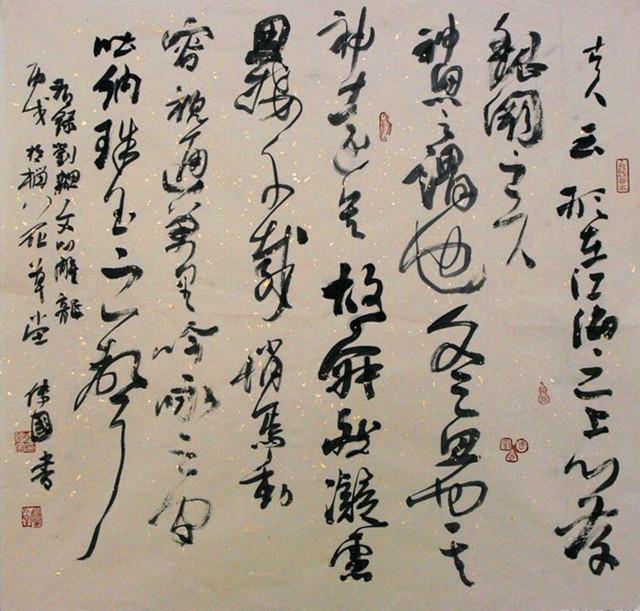 古人云形在江海之上心存
魏闕之下
神思之謂也文之思也其
神遠矣故寂然凝慮
思接千載悄焉動
容視通萬里吟咏之間
吐納珠玉之聲
錄劉勰文心雕龍
丙戌 草堂 國書